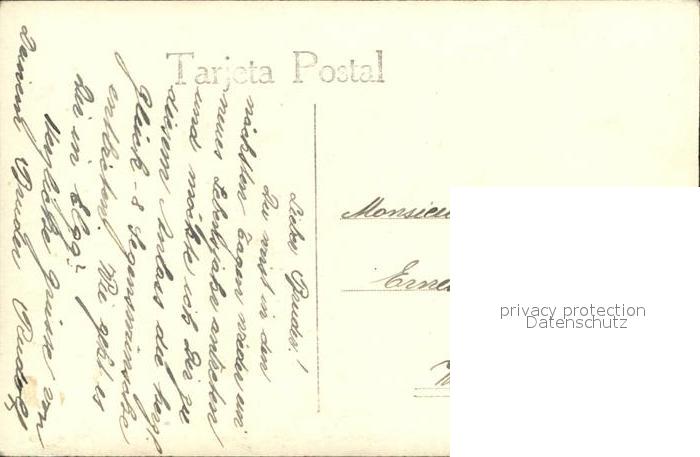 Tarjeta Postal
Lieber Bruder!
Du wirst in den
nächsten Tagen wieder ein
neues Lebensjahr antreten
und möchte ich Dir zu
diesem Anlass die herzl.
Glück- & Segenswünsche
entbieten. Wie geht es
Dir in Elgg?
Herzliche Grüsse von
Deinem Bruder Rudolf
Monsieu
Erne
W
privacy protection
Datenschutz